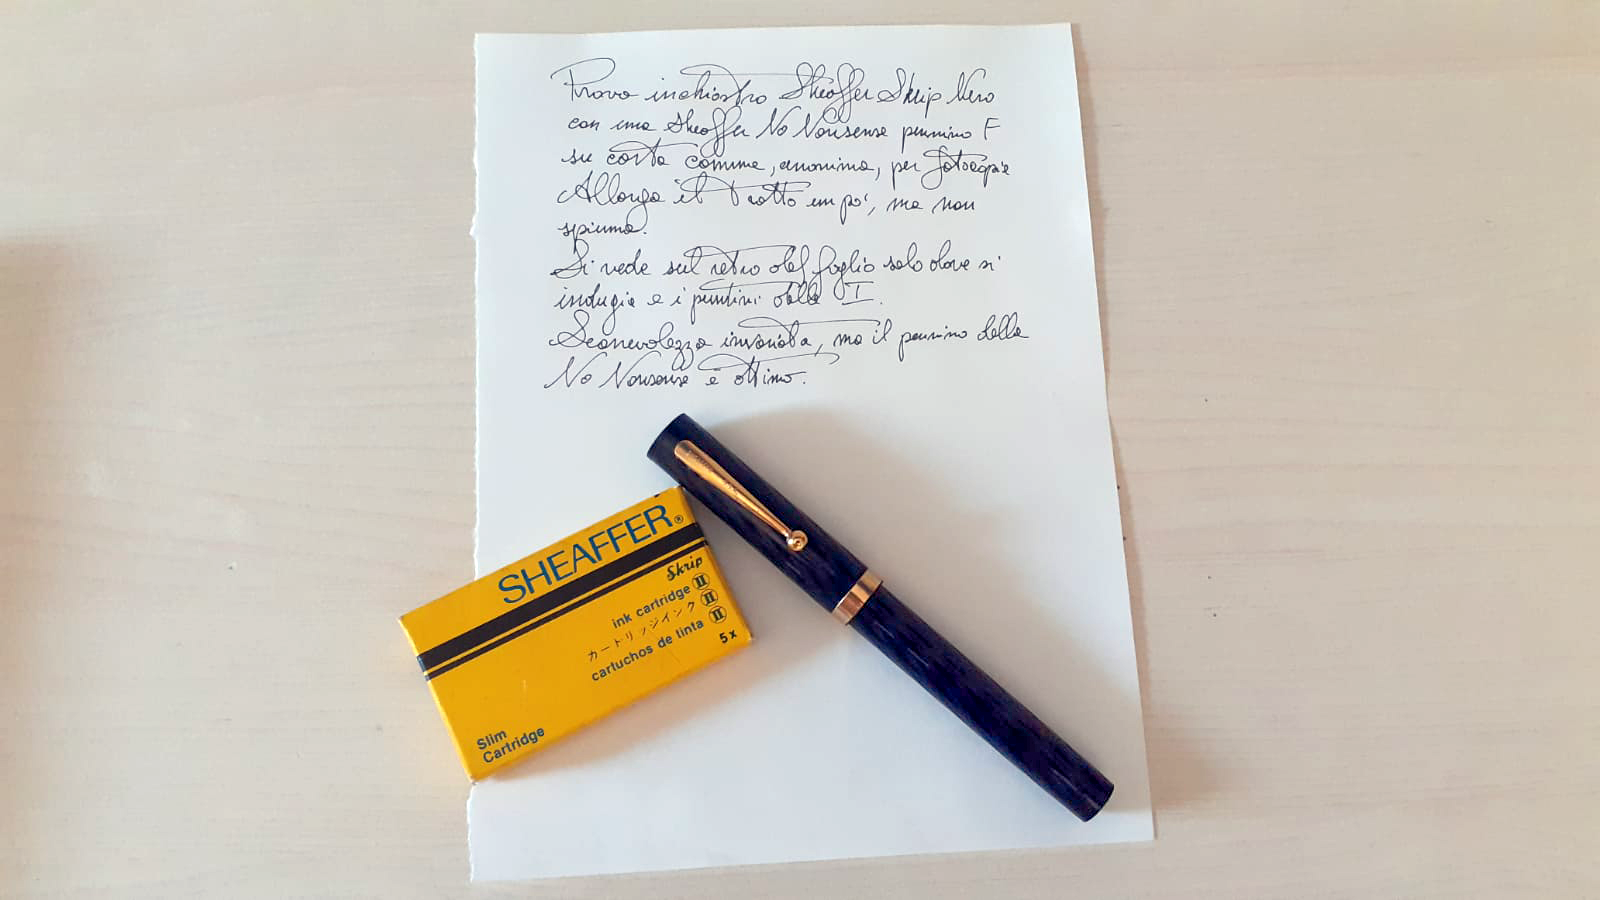 Provo inchiostro Sheaffer Skrip Nero
con una Sheaffer No Nonsense pennino F
su carta comune, anonima, per fotocopie
Allarga il tratto un po', ma non
spiuma.
Si vede sul retro del foglio solo dove si
indugia e i puntini delle I.
Scorrevolezza invariata, ma il pennino della
No Nonsense è ottimo.
SHEAFFER®
Skrip
ink cartridge II
カートリッジインク II
cartuchos de tinta II
5x
Slim
Cartridge